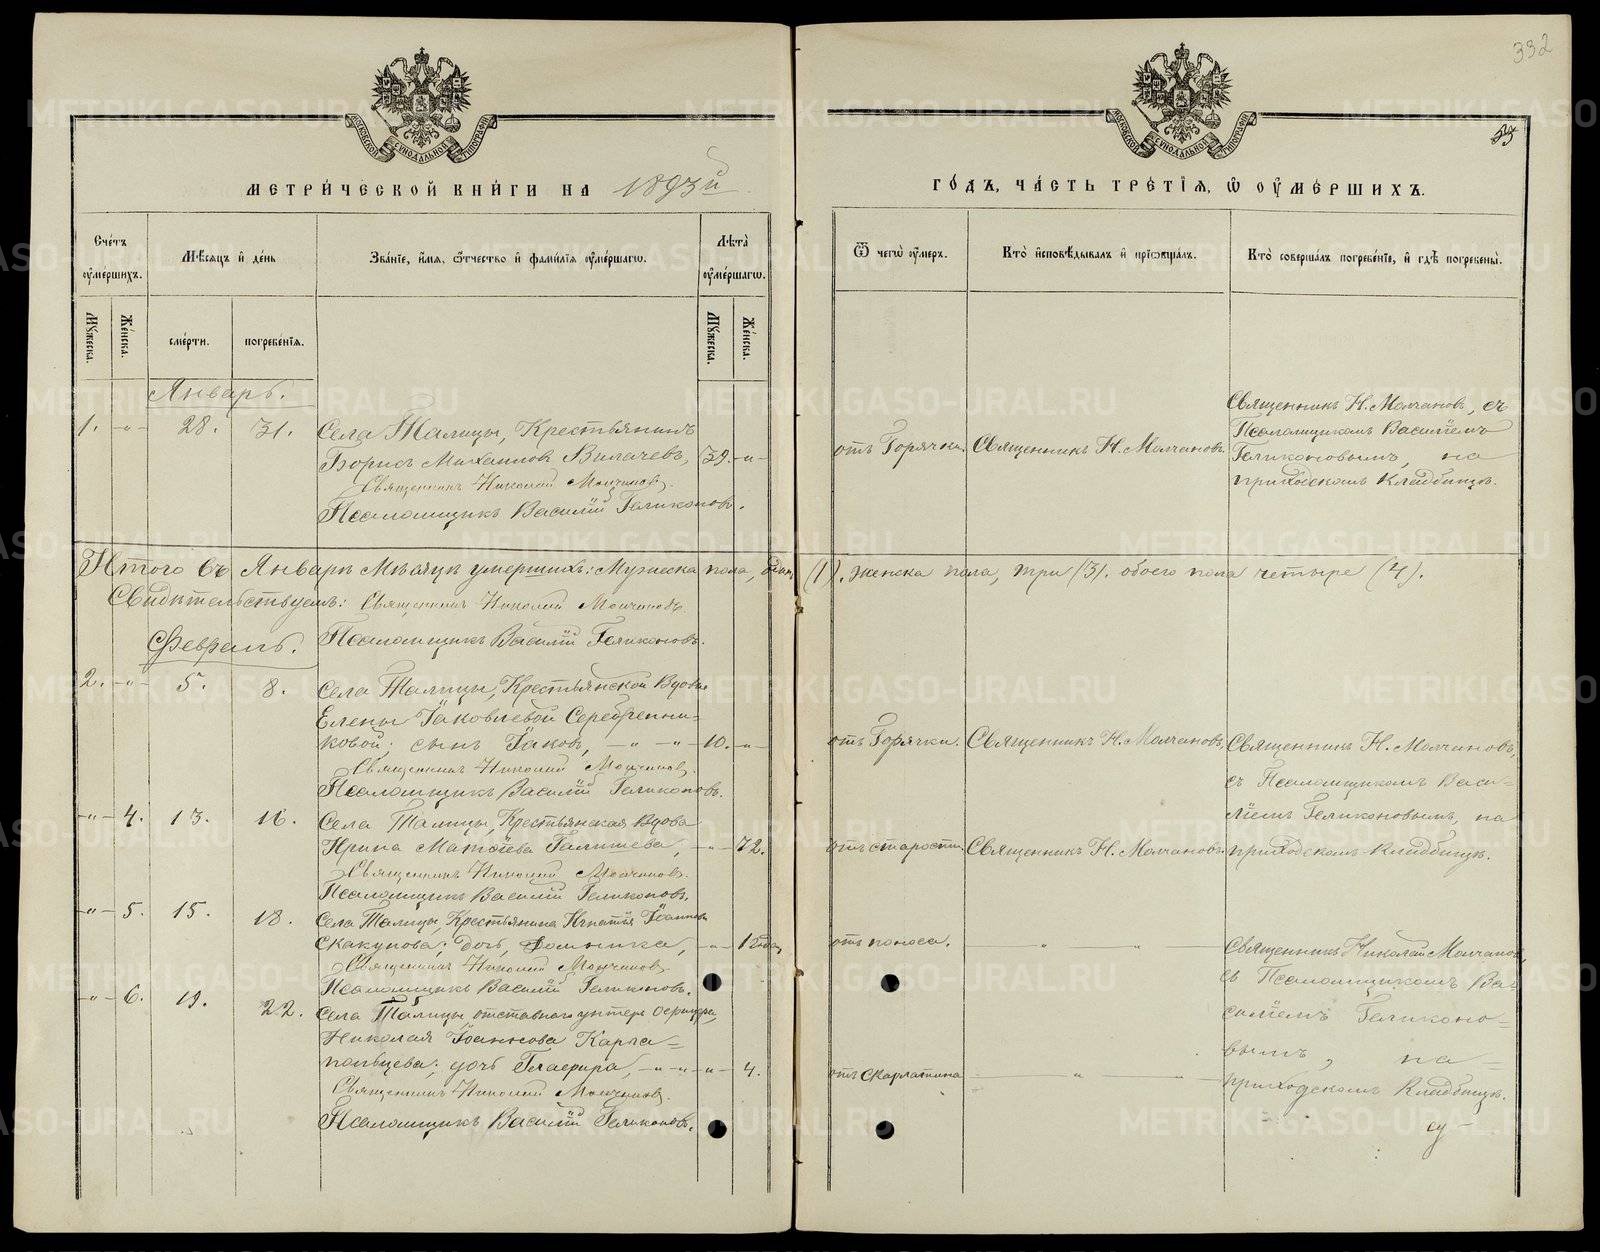 332
53
МОСКОВСКОЙ СѴНОДАЛЬНОЙ ТИПОГРАФІИ
МОСКОВСКОЙ СѴНОДАЛЬНОЙ ТИПОГРАФІИ
МЕТРИЧЕСКОЙ КНИГИ НА 1893й
ГОДЪ, ЧАСТЬ ТРЕТІЯ, Ѿ ОУМЕРШИХЪ.
Счетъ оумершихъ.
Мѣсяцъ и день
Званіе, имя, отчество и фамилія оумершагѡ.
Лѣта оумершагѡ.
Ѿ чегѡ оумеръ.
Кто исповѣдывалъ и пріѡбщалъ.
Кто совершалъ погребеніе, и гдѣ погребены.
Мужеска.
Женска.
смерти.
погребенія.
Мужеска.
Женска.
Январь.
1. -"- 28. 31. Села Талицы, Крестьянинъ
Борисъ Михаиловъ Вилачевъ, 39. -"-
Священникъ Николай Молчановъ.
Псаломщикъ Василій Геликоновъ.
отъ Горячки. Священникъ Н. Молчановъ.
Священникъ Н. Молчановъ, съ
Псаломщикомъ Василіемъ
Геликоновымъ, на
приходскомъ Кладбищѣ.
Итого въ Январѣ Мѣсяцѣ умершихъ: Мужеска пола, одинъ (1). женска пола, три (3). обоего пола четыре (4).
Свидѣтельствуемъ: Священникъ Николай Молчановъ
Псаломщикъ Василій Геликоновъ.
Февраль.
2. -"- 5. 8. Села Талицы, Крестьянской Вдовы
Елены Іаковлевой Серебренни=
ковой; сынъ Іаковъ, -"- -"- 10. -"-
Священникъ Николай Молчановъ.
Псаломщикъ Василій Геликоновъ.
отъ Горячки. Священникъ Н. Молчановъ.
Священникъ Н. Молчановъ,
съ Псаломщикомъ Васи-
ліемъ Геликоновымъ, на
приходскомъ Кладбищѣ.
-"- 4. 13. 16. Села Талицы, Крестьянская Вдова
Ирина Матѳіева Галишева, -"- 72.
Священникъ Николай Молчановъ.
Псаломщикъ Василій Геликоновъ.
отъ старости. Священникъ Н. Молчановъ.
-"- 5. 15. 18. Села Талицы, Крестьянина Игнатія Іоаннова
Скакунова; дочь, Домника, -"- 1 года
Священникъ Николай Молчановъ.
Псаломщикъ Василій Геликоновъ.
отъ поноса. " "
Священникъ Николай Молчановъ,
съ Псаломщикомъ Ва-
силіемъ Геликоно=
вымъ, на
приходскомъ Кладбищѣ.
-"- 6. 19. 22. Села Талицы отставнаго унтеръ Офицера,
Николая Іоаннова Карпа=
польцева; дочь Глафира, -"- -"- -"- 4.
Священникъ Николай Молчановъ.
Псаломщикъ Василій Геликоновъ.
отъ Скарлатина " "
METRIKI.GASO-URAL.RU